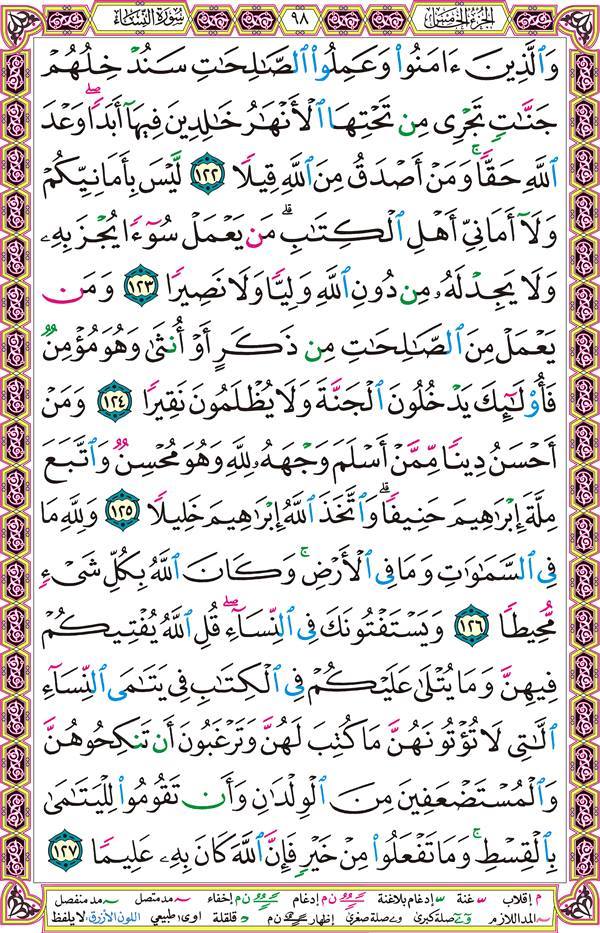 الجزء الخامس ٩٨ سورة النساء
وَٱلَّذِينَ ءَامَنُوا۟ وَعَمِلُوا۟ ٱلصَّٰلِحَٰتِ سَنُدْخِلُهُمْ
جَنَّٰتٍ تَجْرِى مِن تَحْتِهَا ٱلْأَنْهَٰرُ خَٰلِدِينَ فِيهَآ أَبَدًاۖ وَعْدَ
ٱللَّهِ حَقًّاۚ وَمَنْ أَصْدَقُ مِنَ ٱللَّهِ قِيلًا ١٢٢ لَّيْسَ بِأَمَانِيِّكُمْ
وَلَآ أَمَانِىِّ أَهْلِ ٱلْكِتَٰبِۗ مَن يَعْمَلْ سُوٓءًا يُجْزَ بِهِۦ
وَلَا يَجِدْ لَهُۥ مِن دُونِ ٱللَّهِ وَلِيًّا وَلَا نَصِيرًا ١٢٣ وَمَن
يَعْمَلْ مِنَ ٱلصَّٰلِحَٰتِ مِن ذَكَرٍ أَوْ أُنثَىٰ وَهُوَ مُؤْمِنٌ
فَأُو۟لَٰٓئِكَ يَدْخُلُونَ ٱلْجَنَّةَ وَلَا يُظْلَمُونَ نَقِيرًا ١٢٤ وَمَنْ
أَحْسَنُ دِينًا مِّمَّنْ أَسْلَمَ وَجْهَهُۥ لِلَّهِ وَهُوَ مُحْسِنٌ وَٱتَّبَعَ
مِلَّةَ إِبْرَٰهِيمَ حَنِيفًاۗ وَٱتَّخَذَ ٱللَّهُ إِبْرَٰهِيمَ خَلِيلًا ١٢٥ وَلِلَّهِ مَا
فِى ٱلسَّمَٰوَٰتِ وَمَا فِى ٱلْأَرْضِۚ وَكَانَ ٱللَّهُ بِكُلِّ شَىْءٍ
مُّحِيطًا ١٢٦ وَيَسْتَفْتُونَكَ فِى ٱلنِّسَآءِۖ قُلِ ٱللَّهُ يُفْتِيكُمْ
فِيهِنَّ وَمَا يُتْلَىٰ عَلَيْكُمْ فِى ٱلْكِتَٰبِ فِى يَتَٰمَى ٱلنِّسَآءِ
ٱلَّٰتِى لَا تُؤْتُونَهُنَّ مَا كُتِبَ لَهُنَّ وَتَرْغَبُونَ أَن تَنكِحُوهُنَّ
وَٱلْمُسْتَضْعَفِينَ مِنَ ٱلْوِلْدَٰنِ وَأَن تَقُومُوا۟ لِلْيَتَٰمَىٰ
بِٱلْقِسْطِۚ وَمَا تَفْعَلُوا۟ مِنْ خَيْرٍ فَإِنَّ ٱللَّهَ كَانَ بِهِۦ عَلِيمًا ١٢٧
إقلاب غنة إدغام بلاغنة ن م إدغام ن م إخفاء مد متصل مد منفصل
المد اللازم صلة كبرى صلة صغرى إظهار ن م قلقلة اوى طبيعي اللون الأزرق: لا يلفظ